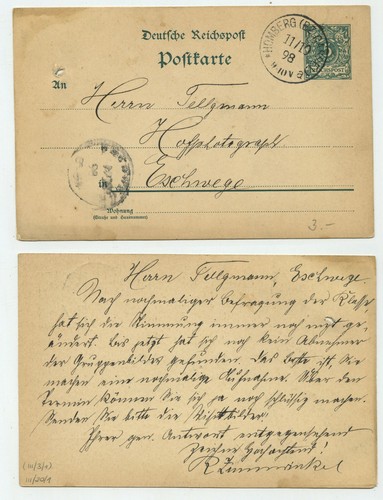 Deutsche Reichspost
Postkarte
HOMBERG (BZ.
11/10
98
REICHSPOST
An
Herrn Tellgmann
Hofphotograph
in
Eschwege
Wohnung
(Straße und Hausnummer)
3.-
Herrn Tellgmann, Eschwege
Nach nochmaliger Befragung der Klasse,
hat sich die Stimmung immer noch nicht ge-
ändert. Bis jetzt hat sich noch kein Abnehmer
der Gruppenbilder gefunden. Das beste ist, Sie
machen eine nochmalige Aufnahme. Über den
Termin können Sie sich ja noch schlüssig machen.
Senden Sie bitte die
Ihrer gen. Antwort entgegensehend
zeichne Hochachtend!
R
(III/3/1)
III/20/1